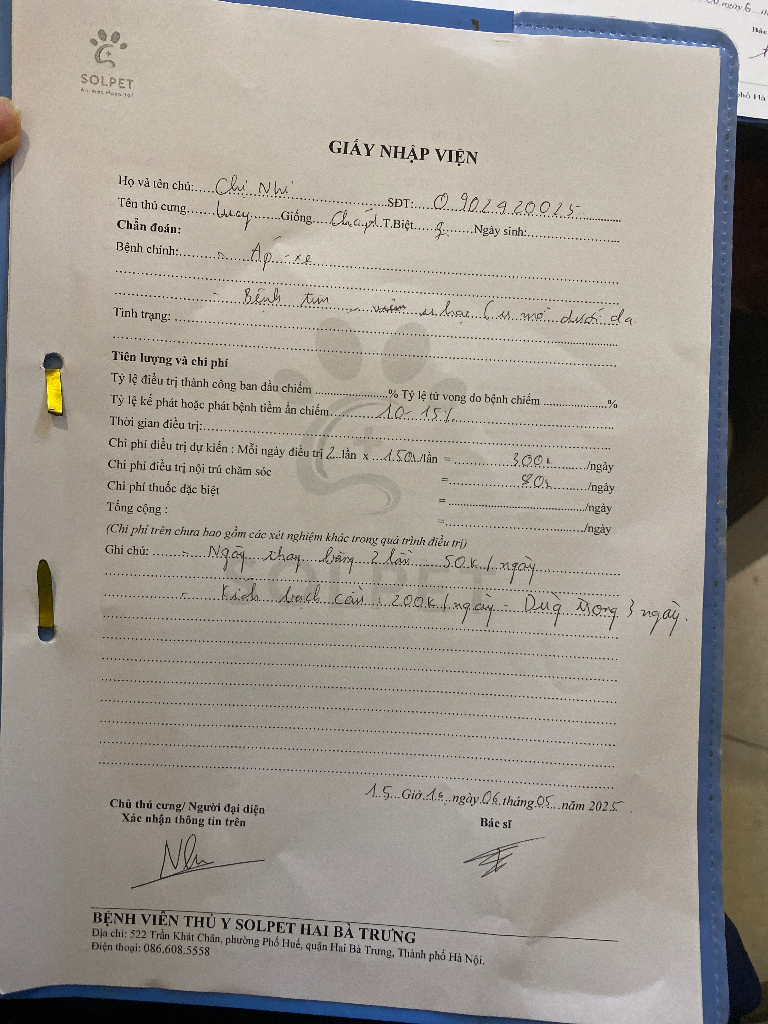 SOLPET
Animal Hospital
GIẤY NHẬP VIỆN
Họ và tên chủ:.....Chị Nhi.....SĐT:....0902920025
Tên thú cưng.......Lucy.......Giống.....T.Biệt.....Ngày sinh:.....
Chẩn đoán:
Bệnh chính:.......Áp-xe
- Bệnh tim dưới da
Tình trạng:
Tiên lượng và chi phí
Tỷ lệ điều trị thành công ban đầu chiếm .....% Tỷ lệ tử vong do bệnh chiếm .....%
Tỷ lệ kế phát hoặc phát bệnh tiềm ẩn chiếm.....10-15%
Thời gian điều trị:.....
Chi phí điều trị dự kiến : Mỗi ngày điều trị 2 lần x 150k/lần = 300k /ngày
Chi phí điều trị nội trú chăm sóc = 80k /ngày
Chi phí thuốc đặc biệt = ...../ngày
Tổng cộng : = ...../ngày
(Chi phí trên chưa bao gồm các xét nghiệm khác trong quá trình điều trị)
Ghi chú: - Ngày thay băng 2 lần 50k/ngày
- Kích bạch cầu : 200k/ngày - Dùng trong 3 ngày.
15 Giờ 10 ngày 06 tháng 05 năm 2025
Chủ thú cưng/ Người đại diện
Xác nhận thông tin trên
Bác sĩ
Nhi
BỆNH VIỆN THÚ Y SOLPET HAI BÀ TRƯNG
Địa chỉ: 522 Trần Khát Chân, phường Phố Huế, quận Hai Bà Trưng, Thành phố Hà Nội.
Điện thoại: 086.608.5558